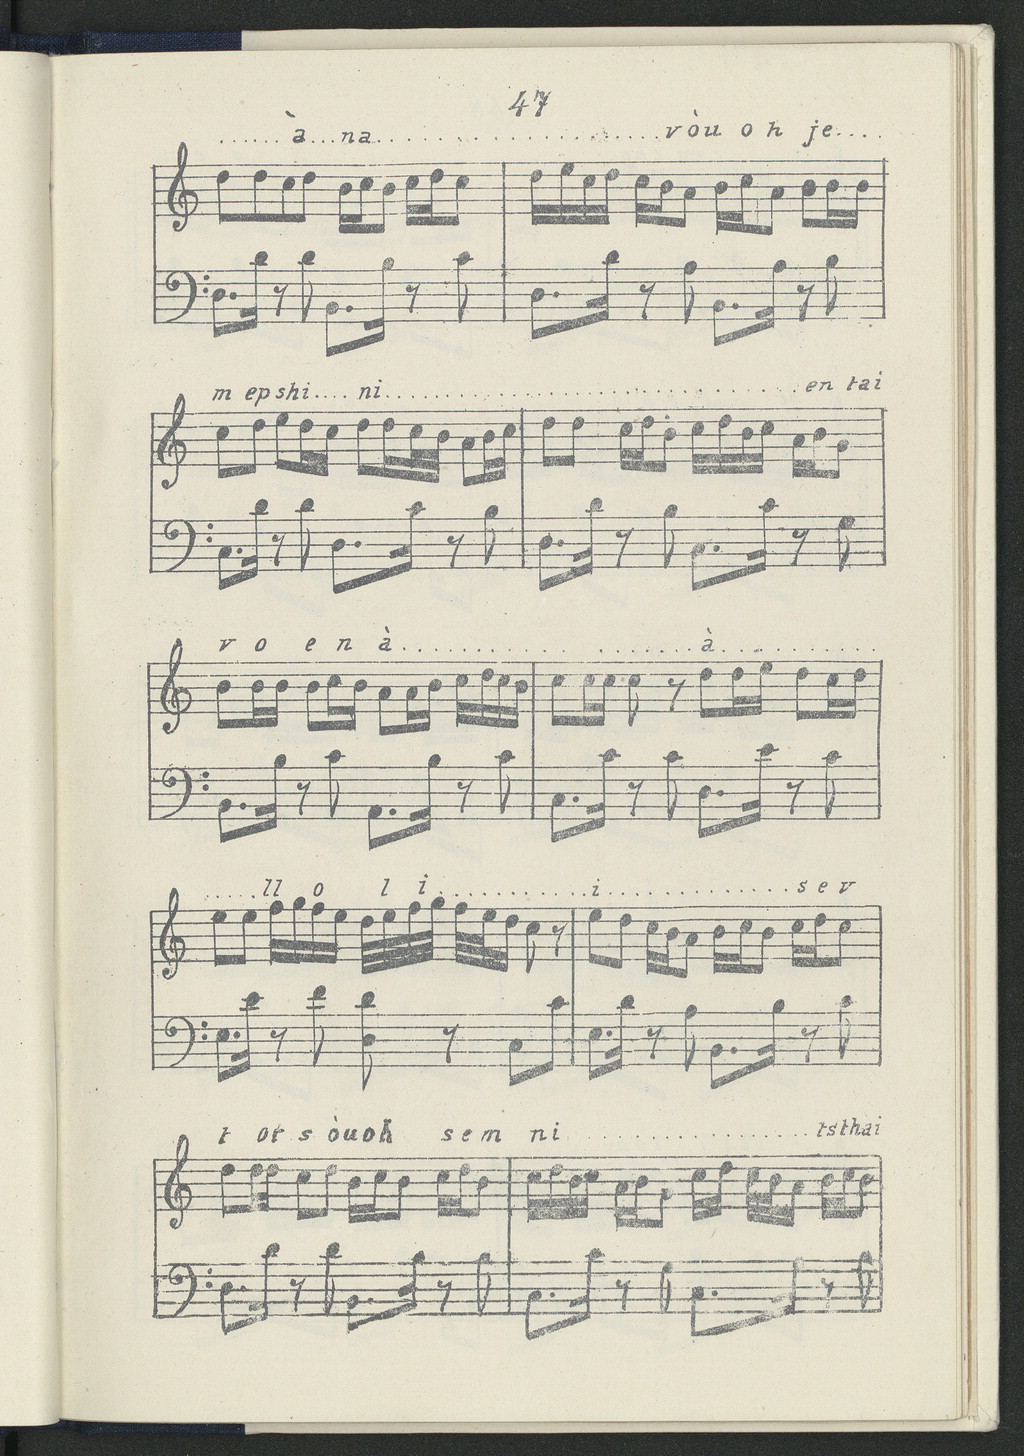 47
......à...na......................vòu o h je....
m epshi....ni..................................en tai
v o e n à........................à...............
.....ll o l i...............i..................s e v
t ot s òuoh s e m ni......................tsthai